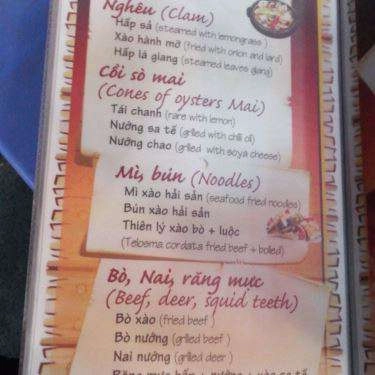 Nghêu (Clam)
Hấp sả (steamed with lemongrass )
Xào hành mỡ (fried with onion and lard)
Hấp lá giang (steamed leaves giang)
Cồi sò mai
(Cones of oysters Mai)
Tái chanh (rare with lemon)
Nướng sa tế (grilled with chili oil)
Nướng chao (grilled with soya cheese)
Mì, bún (Noodles)
Mì xào hải sản (seafood fried noodles)
Bún xào hải sản
Thiên lý xào bò + luộc
(Telosma cordata fried beef + boiled)
Bò, Nai, răng mực
(Beef, deer, squid teeth)
Bò xào (fried beef )
Bò nướng (grilled beef )
Nai nướng (grilled deer )
Răng mực hấp + nướng + xào sa tế